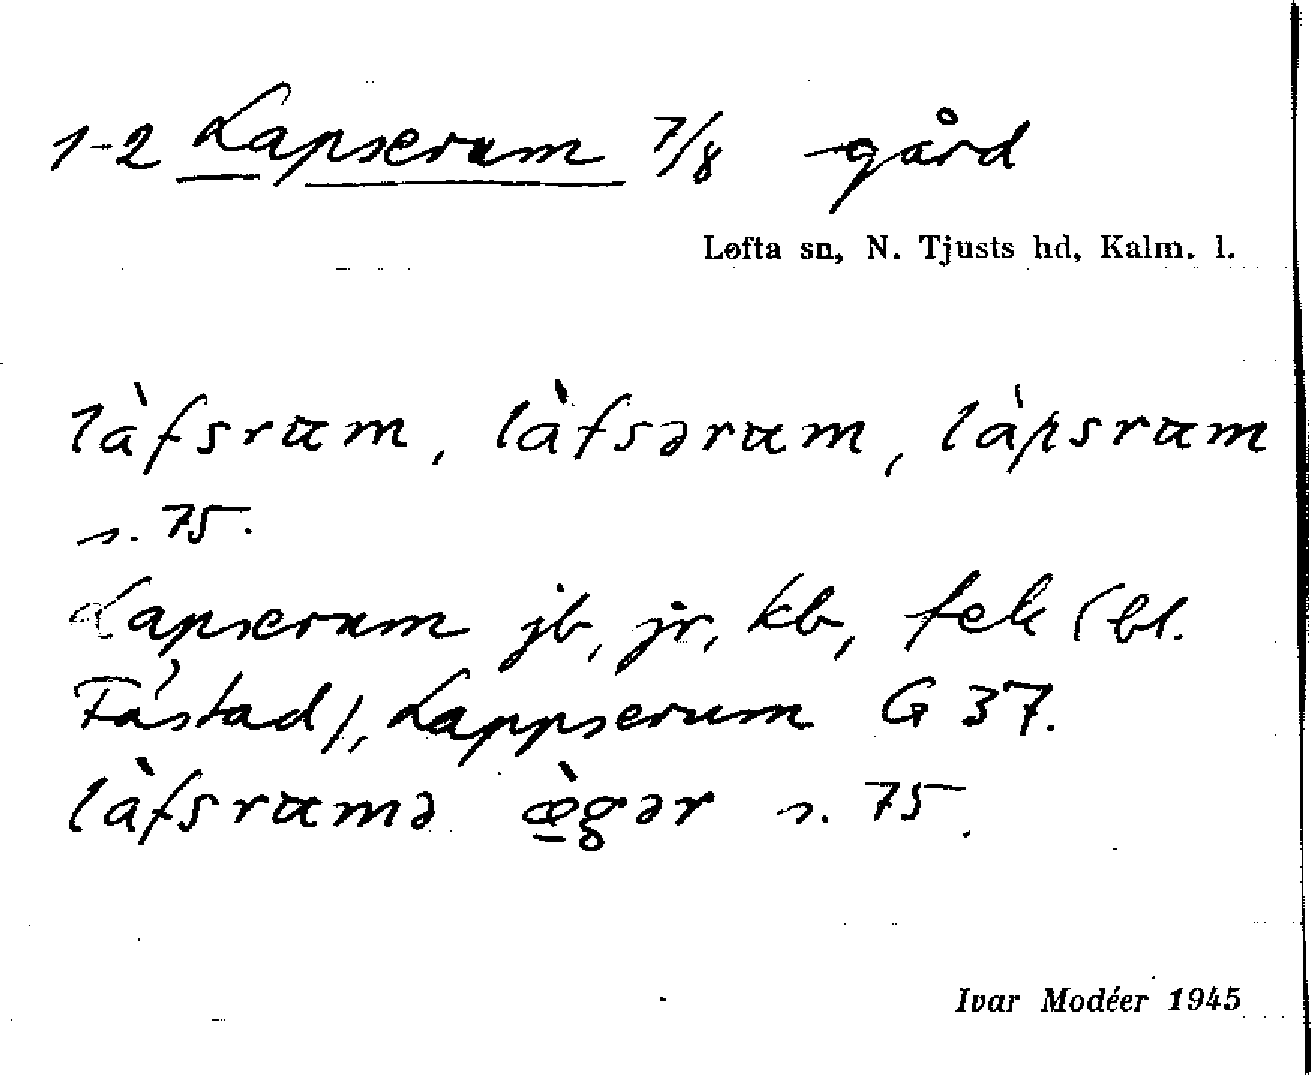 1-2 Lapserum 7/8 gård
Lofta sn, N. Tjusts hd, Kalm. l.
làfsrum, làfsərum, làpsrum
s. 75.
Lapserum jb, jr, kb, fek (bl.
Fastad), Lappserum G 37.
làfsrumə æ̀gər s. 75.
Ivar Modéer 1945